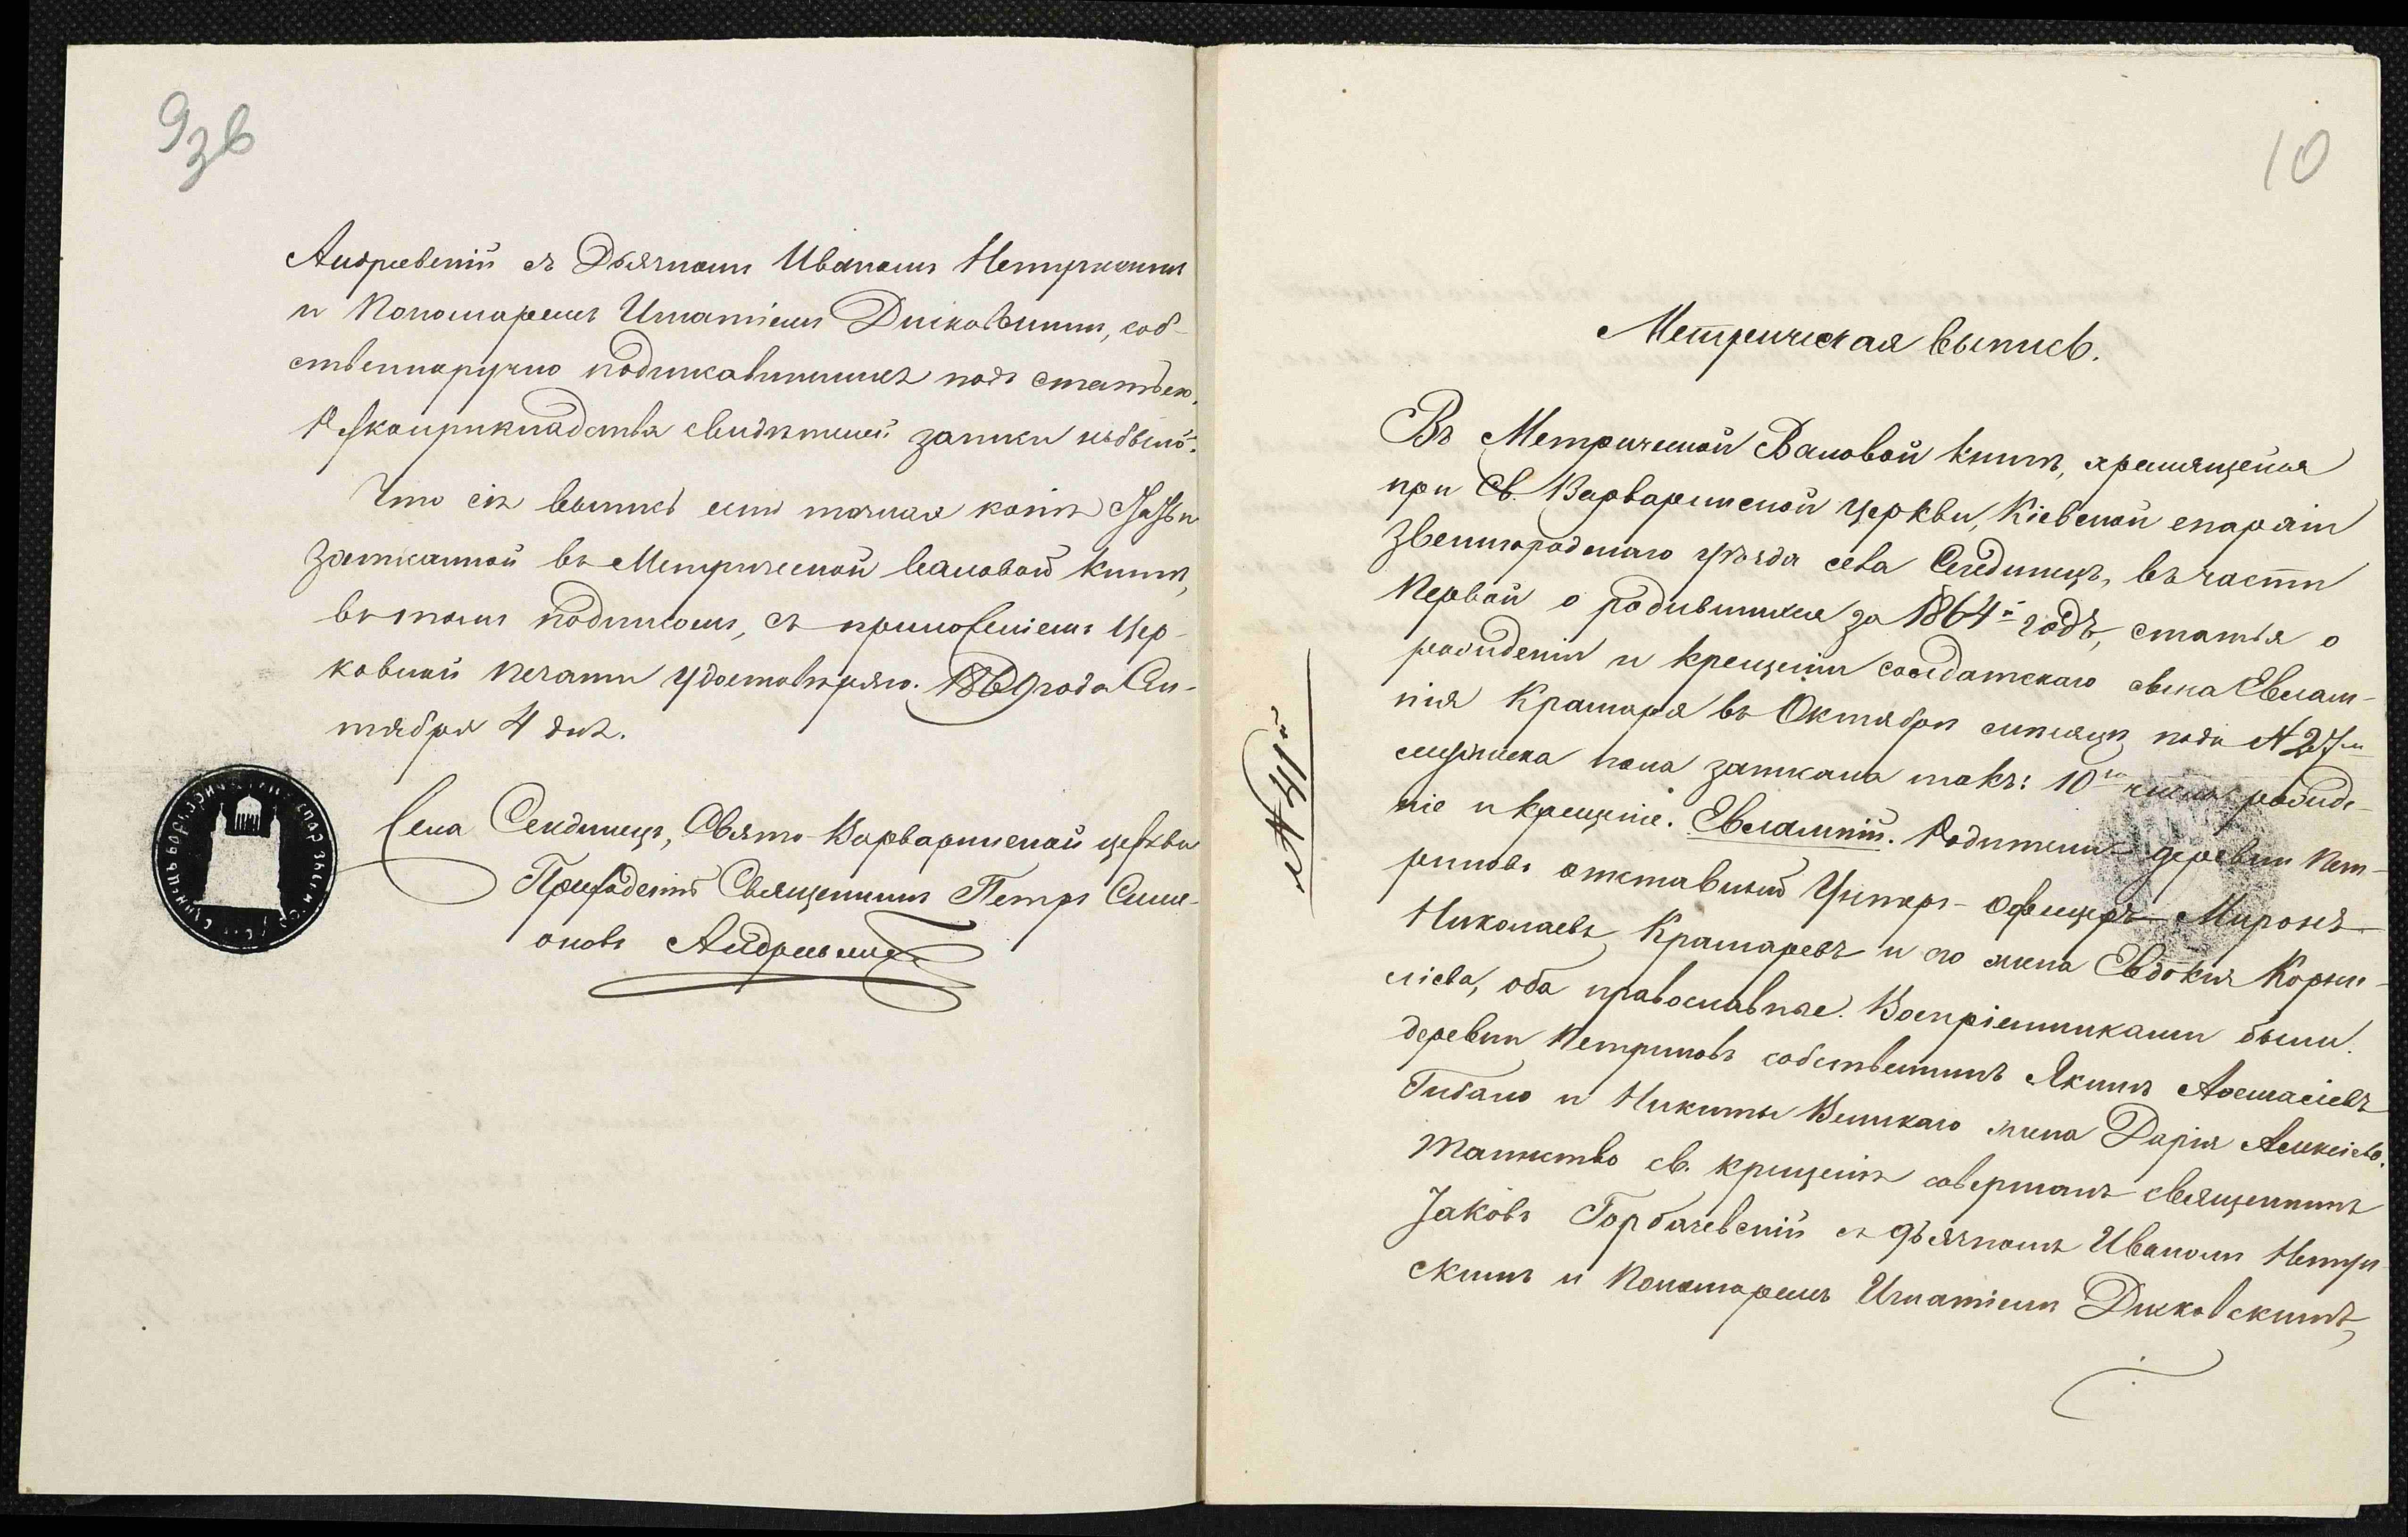 9зв
Андреевскій съ Дьячкомъ Иваномъ Нетурскимъ
и Пономаремъ Игнатіемъ Дисковскимъ, соб-
ственноручно подписавшимися подъ статьею.
Рукоприкладства свидѣтелей записи небыло.
Что сія выпись есть точная копія статьи
записанной въ Метрической валовой книгѣ,
въ томъ подписомъ, съ приложеніемъ Цер-
ковной печати удостовѣряю. 1869 года Сен-
тября 4 дня.
Села Сендинецъ, Свято-Варваринской церкви
Приходскій Священникъ Петръ Симе-
оновъ Андреевскій
10
Метрическая выпись.
Въ Метрической Валовой книгѣ, хранящейся
при Св. Варваринской церкви, Кіевской епархіи
Звенигородскаго уѣзда села Сендинецъ, въ части
Первой о родившихся за 1864й годъ, статья о
рожденіи и крещеніи солдатскаго сына Евлам-
пія Крамаря въ Октябрѣ мѣсяцѣ подъ № 27м
мужеска пола записана такъ: 10го числа рожде-
ніе и крещеніе. Евлампій. Родители деревни Пет-
риковъ отставный Унтеръ-офицеръ Миронъ
Николаевъ Крамаревъ и его жена Евдокія Корни-
ліева, оба православные. Воспріемниками были:
деревни Петриковъ собственникъ Якимъ
и Никиты Великаго жена Дарія Алексіева.
Таинство св. крещенія совершалъ священникъ
Іаковъ Горбачевскій съ дьячкомъ Иваномъ Нетур-
скимъ и Пономаремъ Игнатіемъ Дисковскимъ,
№ 41й